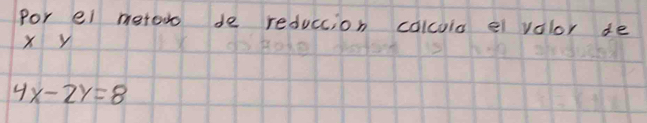 Por el metodo de reduccion calcula el valor de
x y
4x-2y=8